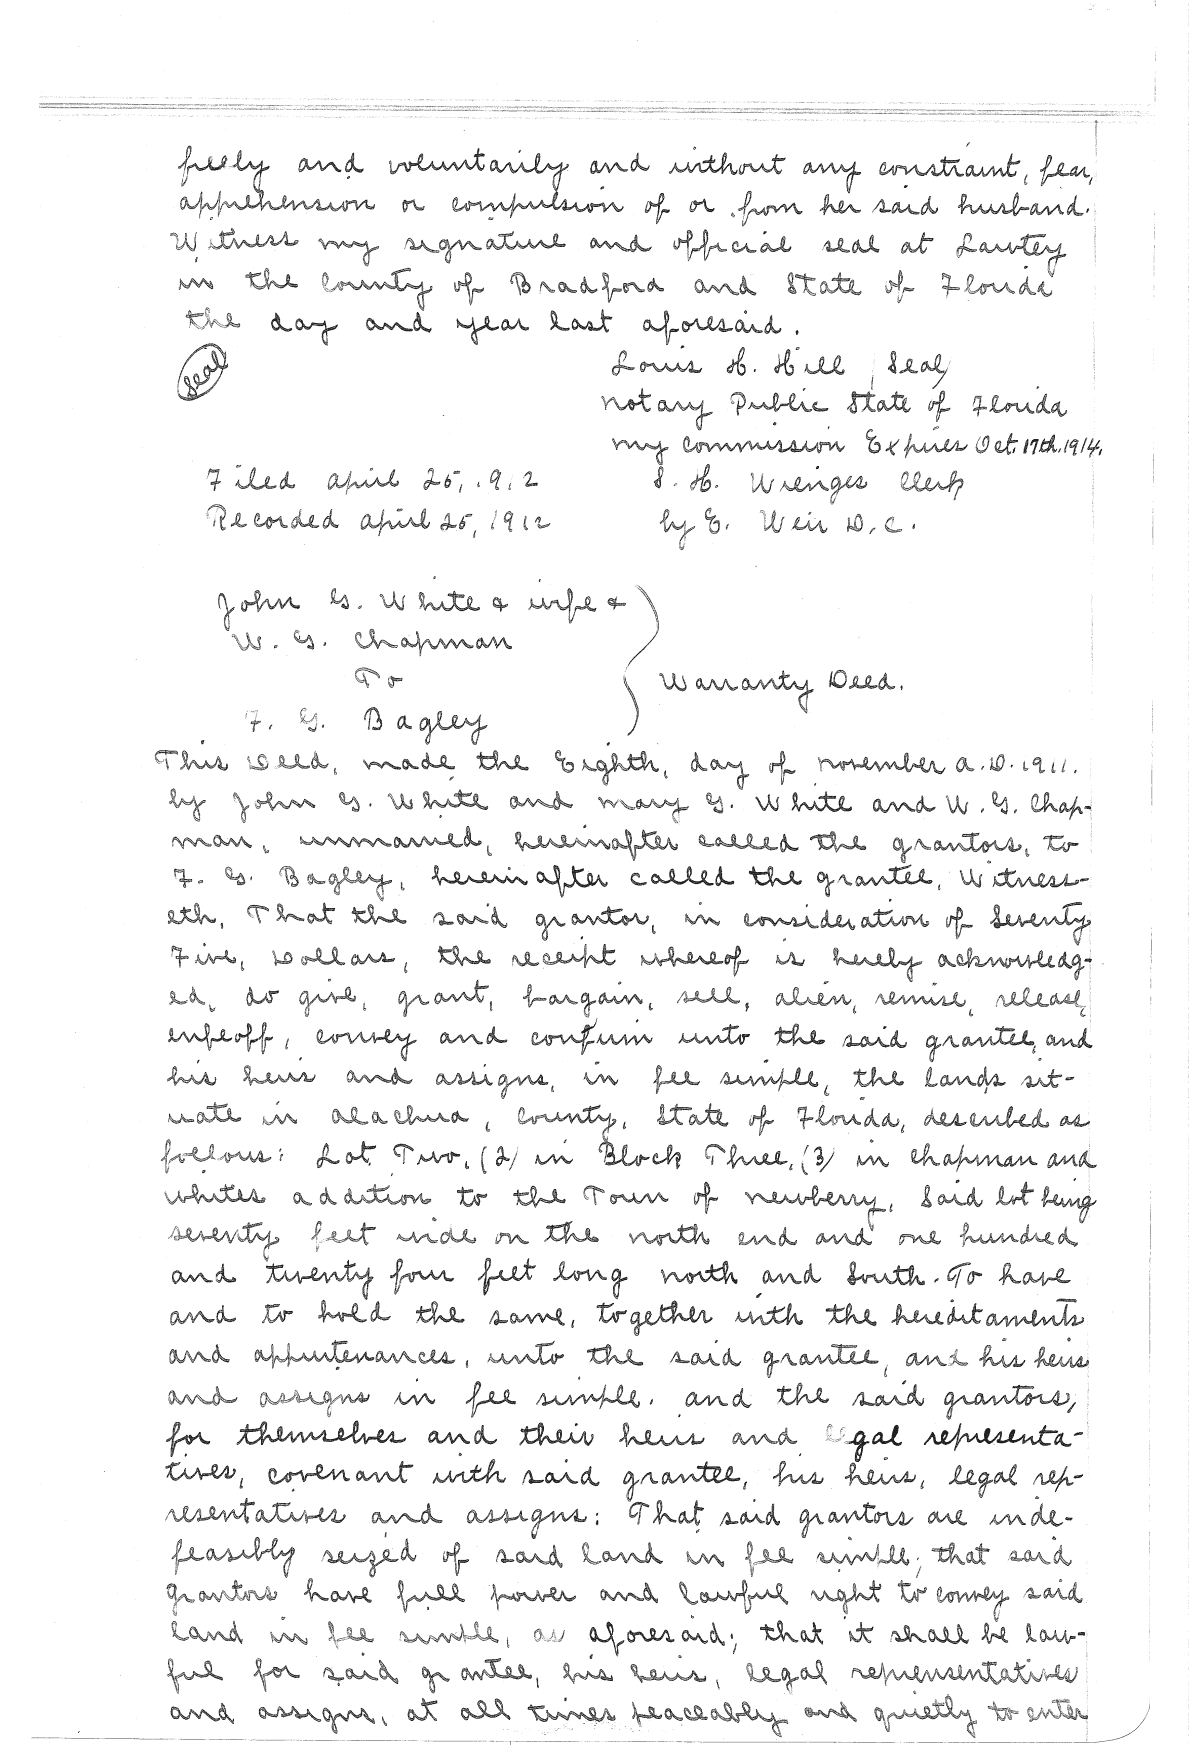 freely and voluntarily and without any constraint, fear,
apprehension or compulsion of or from her said husband.
Witness my signature and official seal at Lawtey
in the County of Bradford and State of Florida
the day and year last aforesaid.
Seal
Louis H. Hill (Seal)
Notary Public State of Florida
My Commission Expires Oct. 17th. 1914.
Filed April 25, 1912 S. H. Wienges Clerk
Recorded April 25, 1912 by E. Weir D.C.
John G. White & wife &
W. G. Chapman
To
Warranty Deed.
F. G. Bagley
This Deed, made the Eighth, day of November A.D. 1911.
by John G. White and Mary G. White and W. G. Chap-
man, unmarried, hereinafter called the grantors, to
F. G. Bagley, hereinafter called the grantee, Witness-
eth, That the said grantor, in consideration of Seventy
Five, Dollars, the receipt whereof is hereby acknowledg-
ed, do give, grant, bargain, sell, alien, remise, release,
enfeoff, convey and confirm unto the said grantee, and
his heirs and assigns, in fee simple, the lands sit-
uate in Alachua, County, State of Florida, described as
follows: Lot Two, (2) in Block Three, (3) in Chapman and
Whites addition to the Town of Newberry, Said lot being
seventy feet wide on the north end and one hundred
and twenty four feet long north and South. To have
and to hold the same, together with the hereditaments
and appurtenances, unto the said grantee, and his heirs
and assigns in fee simple. And the said grantors,
for themselves and their heirs and legal representa-
tives, covenant with said grantee, his heirs, legal rep-
resentatives and assigns: That said grantors are inde-
feasibly seized of said land in fee simple; that said
grantors have full power and lawful right to convey said
land in fee simple, as aforesaid; that it shall be law-
ful for said grantee, his heirs, legal reprensentatives
and assigns, at all times peaceably and quietly to enter